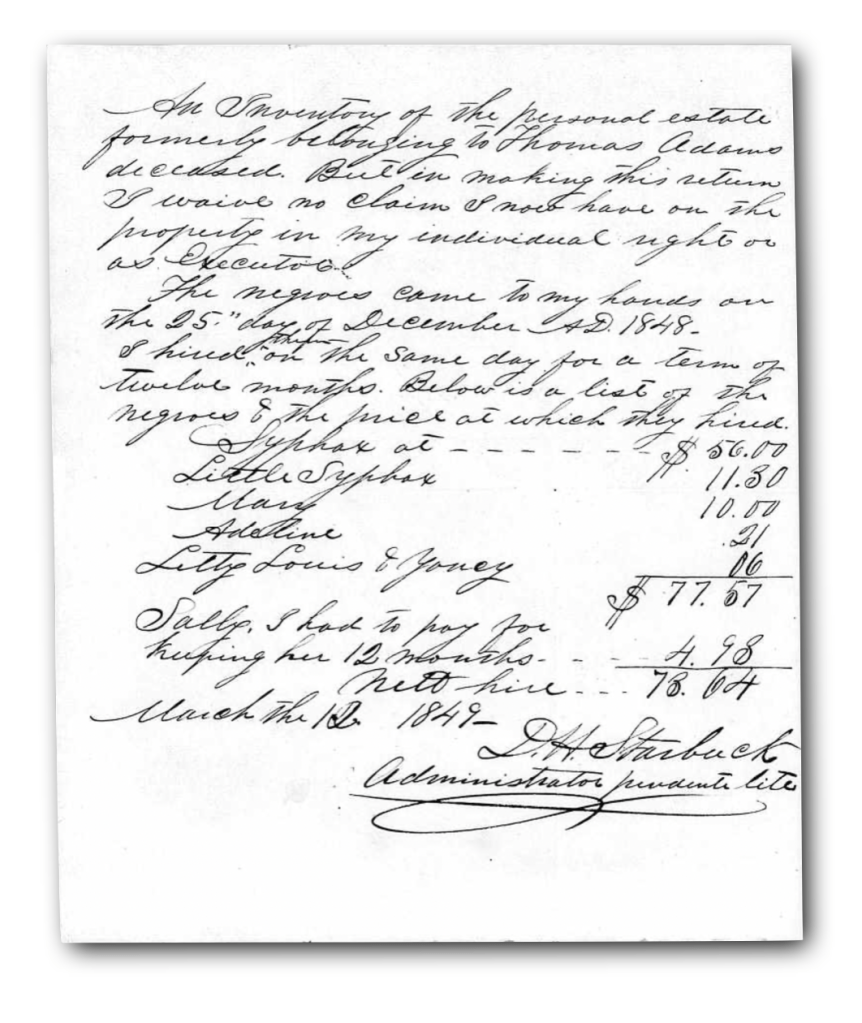 An Inventory of the personal estate
formerly belonging to Thomas Adams
deceased. But in making this return
I waive no claim I now have on the
property in my individual right or
as Executor.
The negroes came to my hands on
the 25." day of December AD. 1848-
I hired them on the same day for a term of
twelve months. Below is a list of the
negroes & the price at which they hired.
Syphax at - - - - - - - $ 56.00
Little Syphax 11.30
Mary 10.00
Adeline .21
Letty Louis & Yoney 06
$ 77.57
Sally. I had to pay for
keeping her 12 months. - - - 4.93
Nett hire - - - 73.64
March the 12. 1849-
D. H. Starbuck
Administrator pendente lite